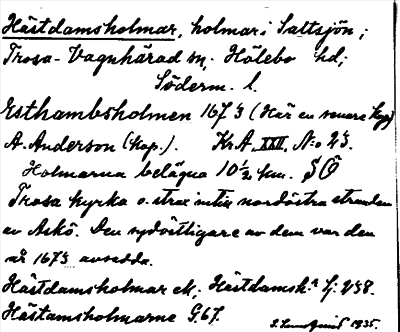 Hästdamsholmar, holmar i Saltsjön;
Trosa-Vagnhärad sn, Hölebo hd,
Söderm. l.
Esthambsholmen 1673 (Här en senare kopia
A. Anderson (kop.). Kr.A. XXII, N:o 23.
Holmarna belägna 10 1/2 km. SO
Trosa kyrka o. strax intill nordöstra stranden
av Askö. Den sydostligare av dem var den
år 1673 avsedda.
Hästdamsholmar ek; Hästdamsk.r f: 238.
Hästamsholmarne G. 67.
1935.